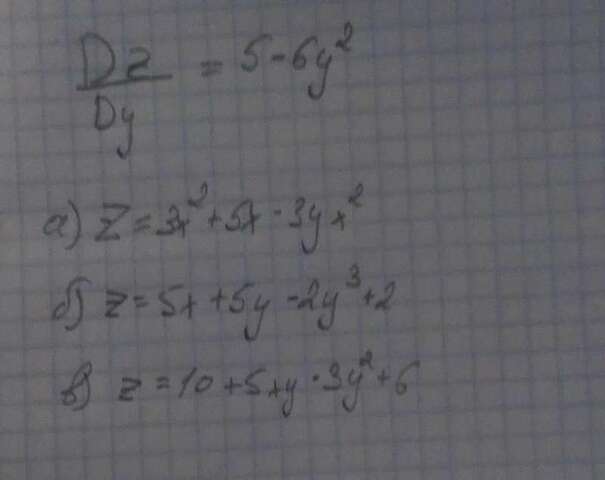 Dz/Dy = 5-6y²
а) Z=3x²+5x-3yx²
б) z=5x+5y-2y³+2
в) z=10+5xy-3y²+6